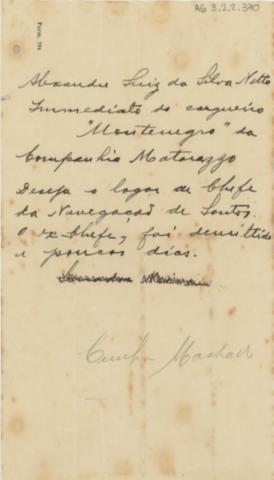 AG 3.2.2.370
Form. 196
Alexandre Luiz da Silva Netto
Immediato do cargueiro
"Montenegro" da
Companhia Matarazzo
Deseja o logar de Chefe
da Navegação de Santos.
O ex-chefe, foi demittido
a poucos dias.
Cunha Machado